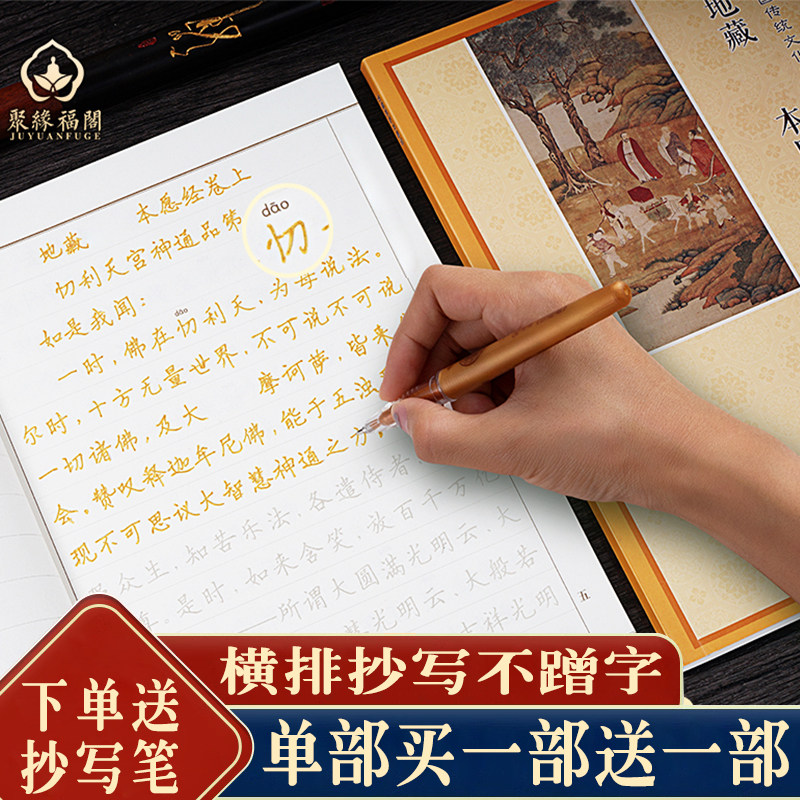 聚緣福閣
JUYUANFUGE
地藏
本
傳统文
地藏 本愿经卷上
忉利天宫神通品第
dāo
忉
如是我闻：
dāo
一时，佛在忉利天，为母说法。
尔时，十方无量世界，不可说不可说
一切诸佛，及大 摩诃萨，皆来
会。赞叹释迦牟尼佛，能于五浊
现不可思议大智慧神通之力，
众生，知苦乐法，各遣侍者，
是时，如来含笑，放百千万亿
所谓大圆满光明云、大
慧光明云、大般若
吉祥光明
五
横排抄写不蹭字
下单送
抄写笔
单部买一部送一部